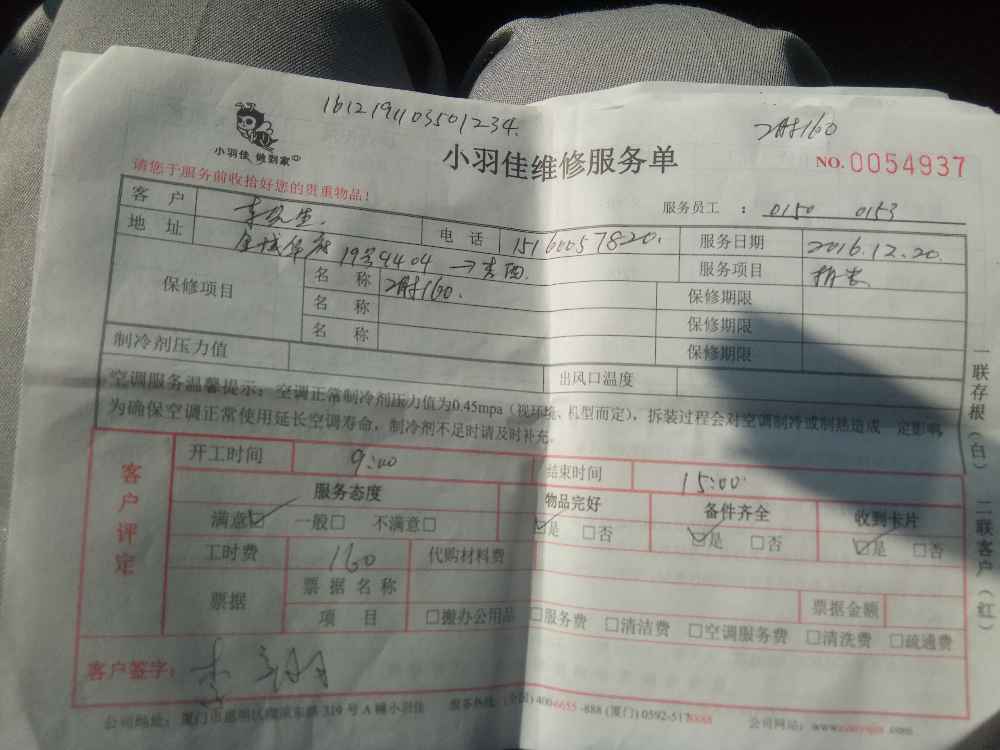 1612191103501234.
2射160
小羽佳 做到家
小羽佳维修服务单
NO. 0054937
请您于服务前收拾好您的贵重物品！
服务员工 ： 0150 0153
客 户 李先生. 电 话 15160057820. 服务日期 2016.12.20.
地 址 19 9404 服务项目
保修项目 名 称 2射160. 保修期限
名 称 保修期限
名 称 保修期限
制冷剂压力值 出风口温度
空调服务温馨提示：空调正常制冷剂压力值为0.45mpa（视环境、机型而定），拆装过程会对空调制冷或制热造成一定影响
为确保空调正常使用延长空调寿命，制冷剂不足时请及时补充。
客户评定
开工时间 9:00 结束时间 15:00
服务态度 物品完好 备件齐全 收到卡片
满意☑ 一般□ 不满意□ ☑是 □否 ☑是 □否 ☑是 □否
工时费 160 代购材料费
票据 票 据 名 称 票据金额
项 目 □搬办公用品 □服务费 □清洁费 □空调服务费 □清洗费 □疏通费
客户签字：
公司地址： 319 号 A 幢小羽佳 服务热线：（全国）400-6655 -888 (厦门) 0592-517 公司网站：www. .com
一联存根（白） 二联客户（红）